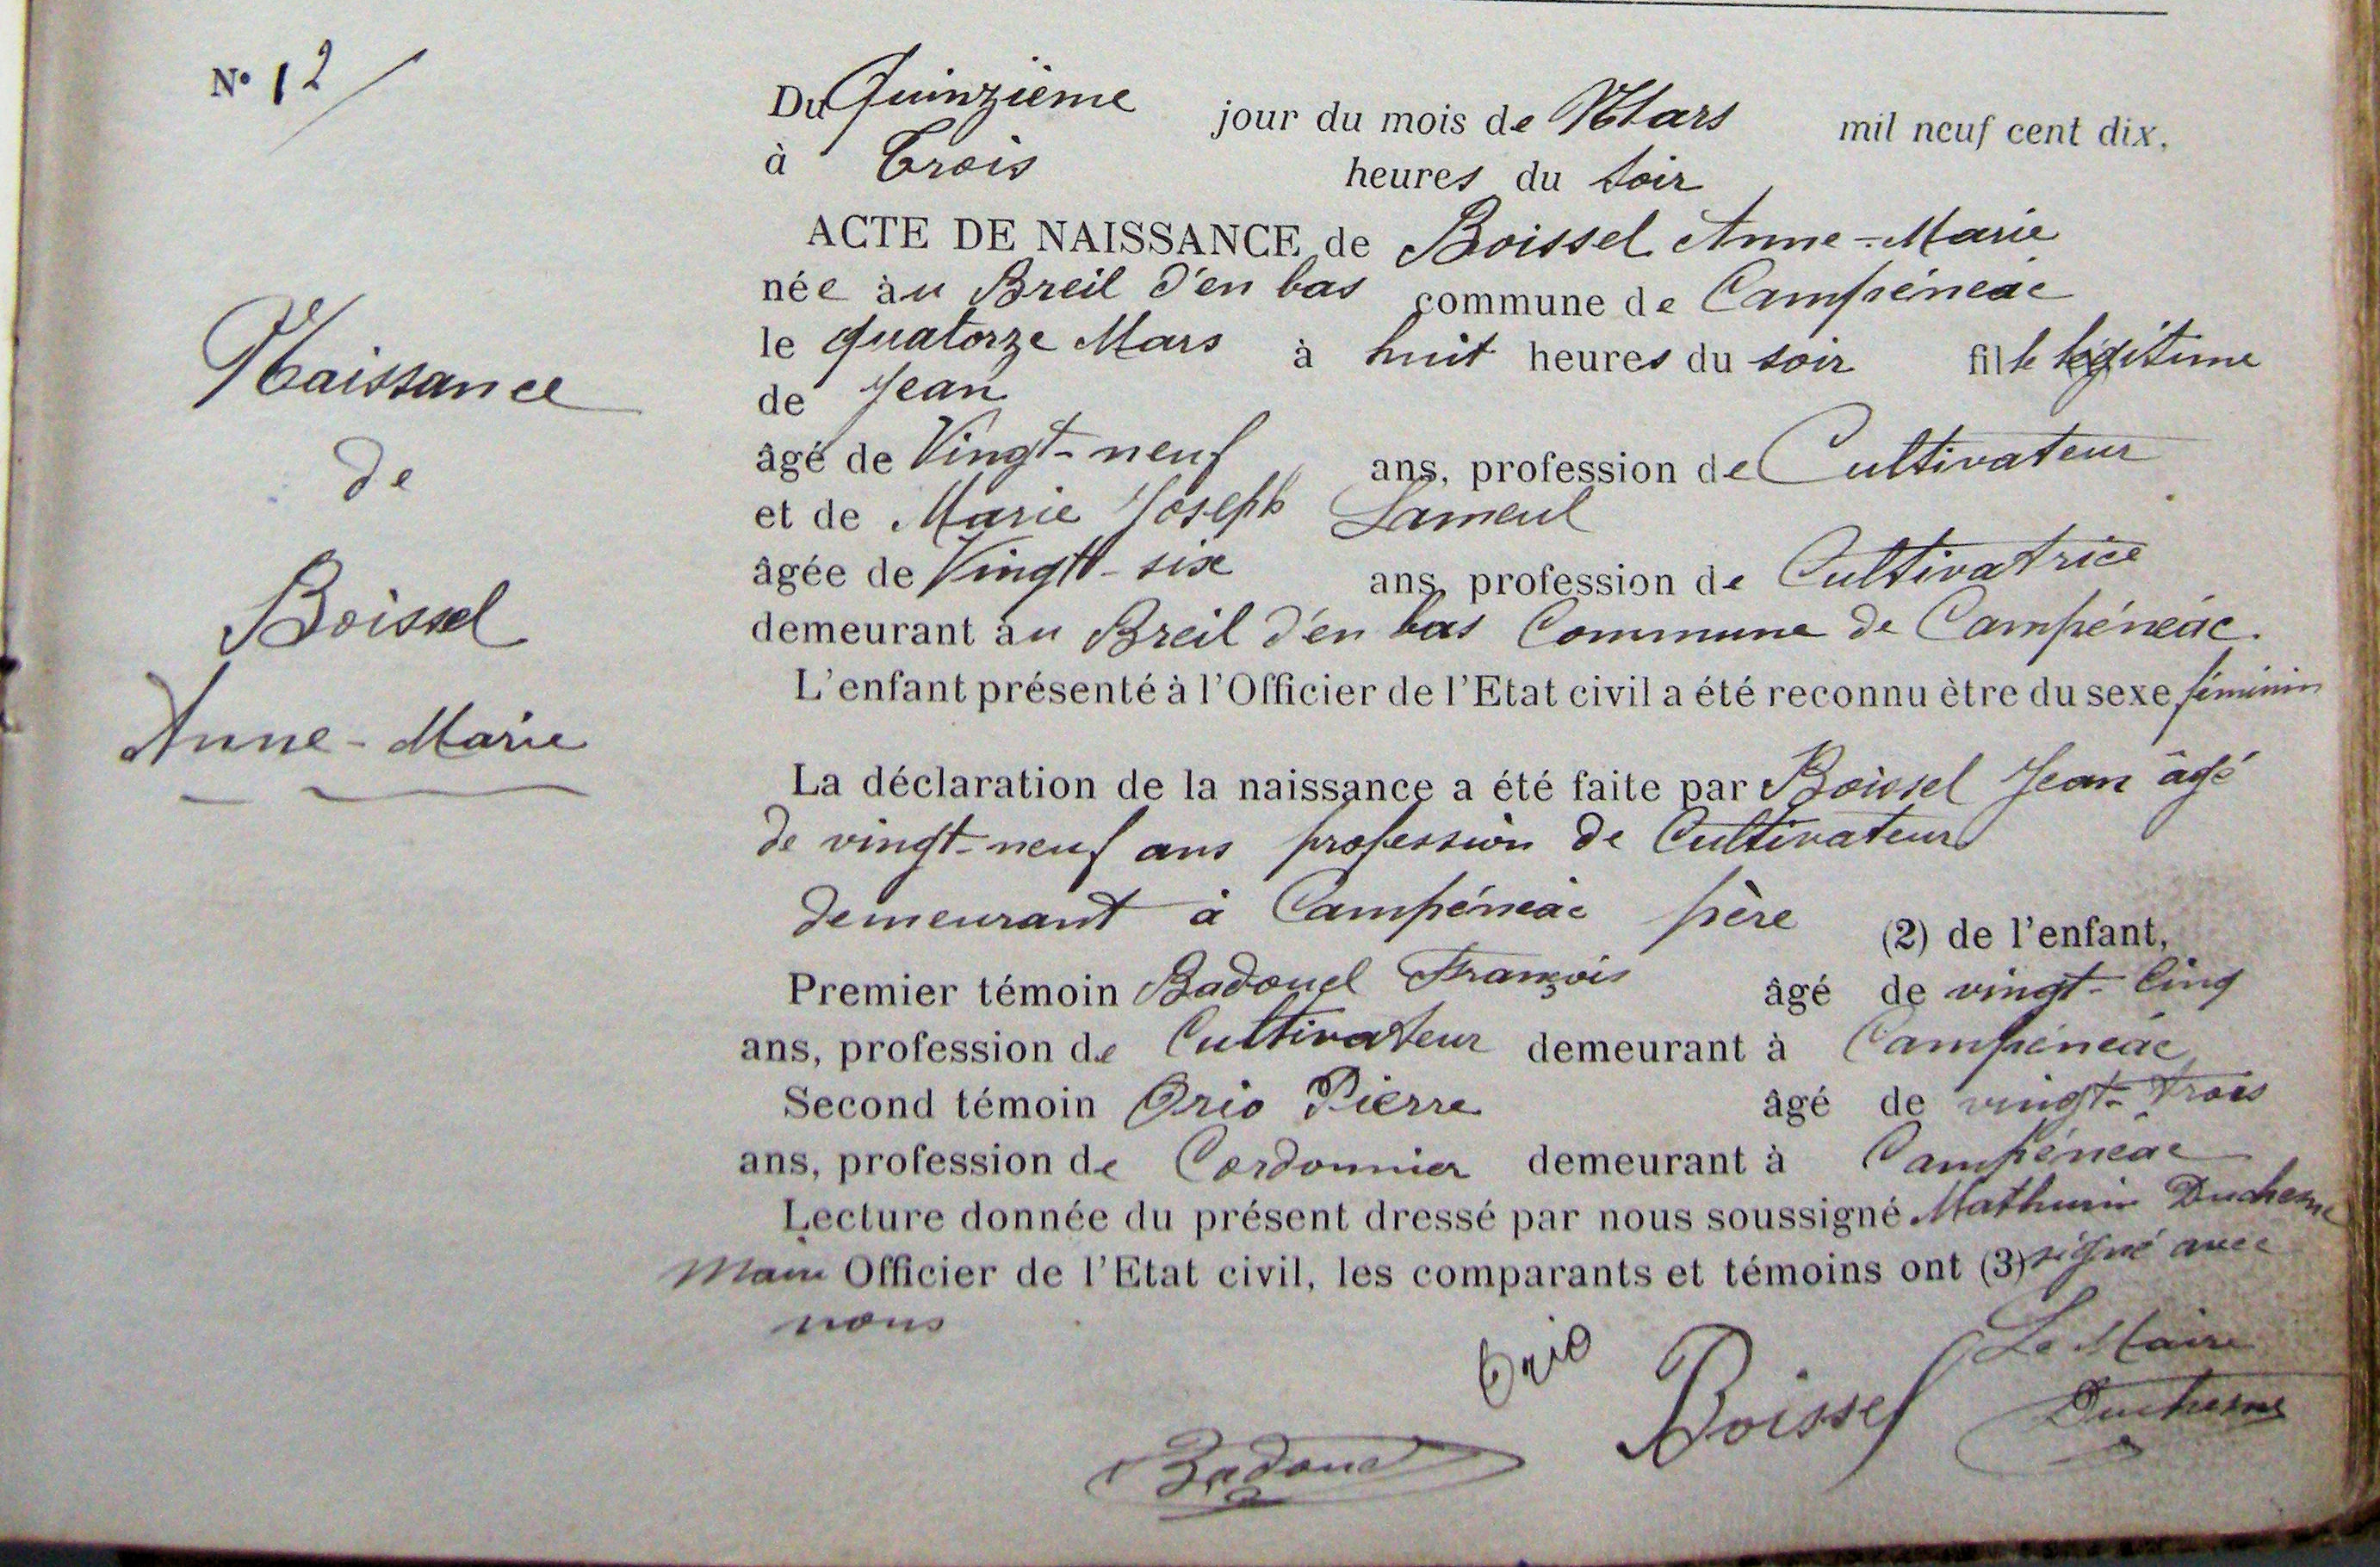 N° 12
Naissance
de
Boissel
Anne-Marie
Du Quinzième jour du mois de Mars mil neuf cent dix,
à Trois heures du soir
ACTE DE NAISSANCE de Boissel Anne-Marie
née au Breil d'en bas commune de Campénéac
le quatorze Mars à huit heures du soir fille légitime
de Jean
âgé de Vingt-neuf ans, profession de Cultivateur
et de Marie Joseph Lameul
âgée de Vingt-six ans, profession de Cultivatrice
demeurant au Breil d'en bas Commune de Campénéac.
L'enfant présenté à l'Officier de l'Etat civil a été reconnu être du sexe féminin
La déclaration de la naissance a été faite par Boissel Jean âgé
de vingt-neuf ans profession de Cultivateur
demeurant à Campénéac père (2) de l'enfant,
Premier témoin Badouel François âgé de vingt-cinq
ans, profession de Cultivateur demeurant à Campénéac
Second témoin Orio Pierre âgé de vingt-trois
ans, profession de Cordonnier demeurant à Campénéac
Lecture donnée du présent dressé par nous soussigné Mathurin Duchesne
Maire Officier de l'Etat civil, les comparants et témoins ont (3) signé avec
nous
Orio
Le Maire
Boissel
Duchesne
Badouel